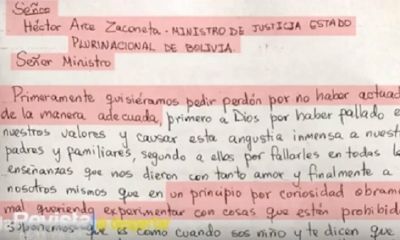 Señor
Héctor Arce Zaconeta - MINISTRO DE JUSTICIA ESTADO
PLURINACIONAL DE BOLIVIA.
Señor Ministro
Primeramente quisiéramos pedir perdón por no haber actuad
de la manera adecuada, primero a Dios por haber fallado e
nuestros valores y causar esta angustia inmensa a nuest
padres y familiares, segundo a ellos por fallarles en todas la
enseñanzas que nos dieron con tanto amor y finalmente a
nosotros mismos que en un principio por curiosidad obramo
mal queriendo experimentar con cosas que están prohibid
Suponemos que es como cuando sos niño y te dicen que
la Revista